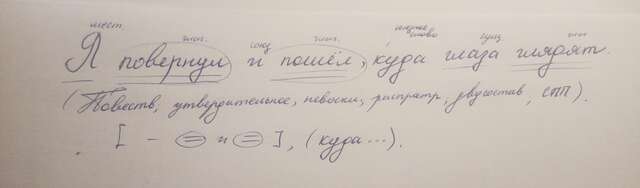 мест. глаг. союз глаг. союзное слово сущ. глаг.
Я повернул и пошёл, куда глаза глядят.
(Повеств, утвердительное, невоскл, распростр, двусостав, СПП).
[ - = и = ], (куда...).